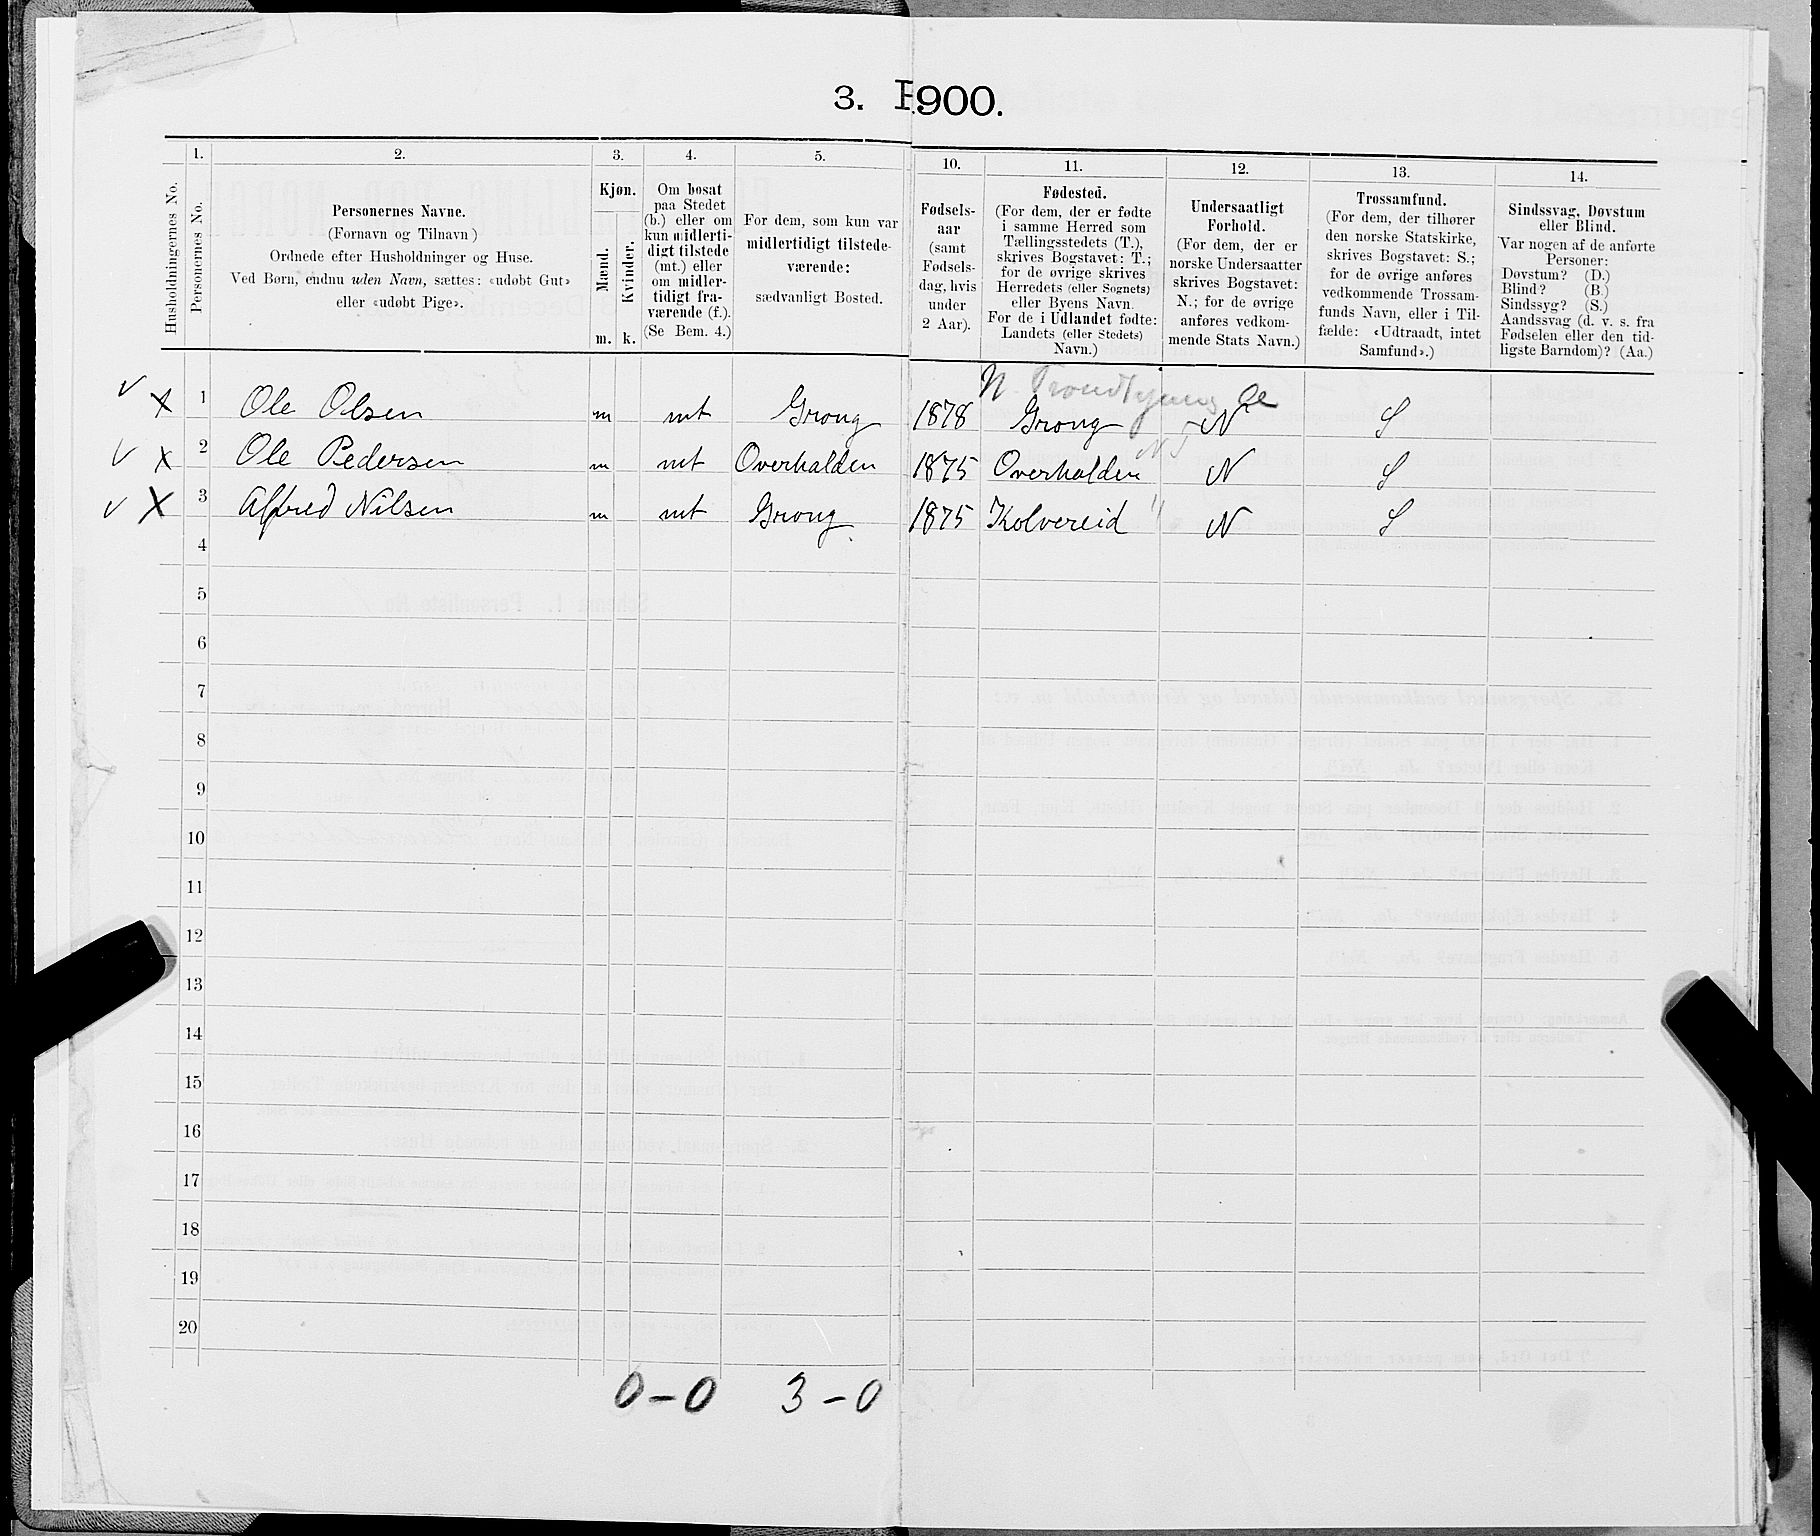 3. F900.
1. 2. 3. 4. 5. 10. 11. 12. 13. 14.
Husholdningernes No.
Personernes No.
Personernes Navne.
(Fornavn og Tilnavn)
Ordnede efter Husholdninger og Huse.
Ved Børn, endnu uden Navn, sættes: «udøbt Gut»
eller «udøbt Pige».
Kjøn.
Mænd.
Kvinder.
m. k.
Om bosat
paa Stedet
(b.) eller om
kun midlerti-
digt tilstede
(mt.) eller
om midler-
tidigt fra-
værende (f.).
(Se Bem. 4.)
For dem, som kun var
midlertidigt tilstede-
værende:
sædvanligt Bosted.
Fødsels-
aar
(samt
Fødsels-
dag, hvis
under
2 Aar).
Fødested.
(For dem, der er fødte
i samme Herred som
Tællingsstedets (T.),
skrives Bogstavet: T.;
for de øvrige skrives
Herredets (eller Sognets)
eller Byens Navn.
For de i Udlandet fødte:
Landets (eller Stedets)
Navn.)
Undersaatligt
Forhold.
(For dem, der er
norske Undersaatter
skrives Bogstavet:
N.; for de øvrige
anføres vedkom-
mende Stats Navn.)
Trossamfund.
(For dem, der tilhører
den norske Statskirke,
skrives Bogstavet: S.;
for de øvrige anføres
vedkommende Trossam-
funds Navn, eller i Til-
fælde: «Udtraadt, intet
Samfund».)
Sindssvag, Døvstum
eller Blind.
Var nogen af de anførte
Personer:
Døvstum? (D.)
Blind? (B.)
Sindssyg? (S.)
Aandssvag (d. v. s. fra
Fødselen eller den tid-
ligste Barndom)? (Aa.)
N. Trondhjems
v x 1 Ole Olsen m mt Grong 1878 Grong N S
N T
v x 2 Ole Pedersen m mt Overhalden 1875 Overhalden N S
v x 3 Alfred Nilsen m mt Grong 1875 Kolvereid " N S
4
5
6
7
8
9
10
11
12
13
14
15
16
17
18
19
20
0-0 3-0